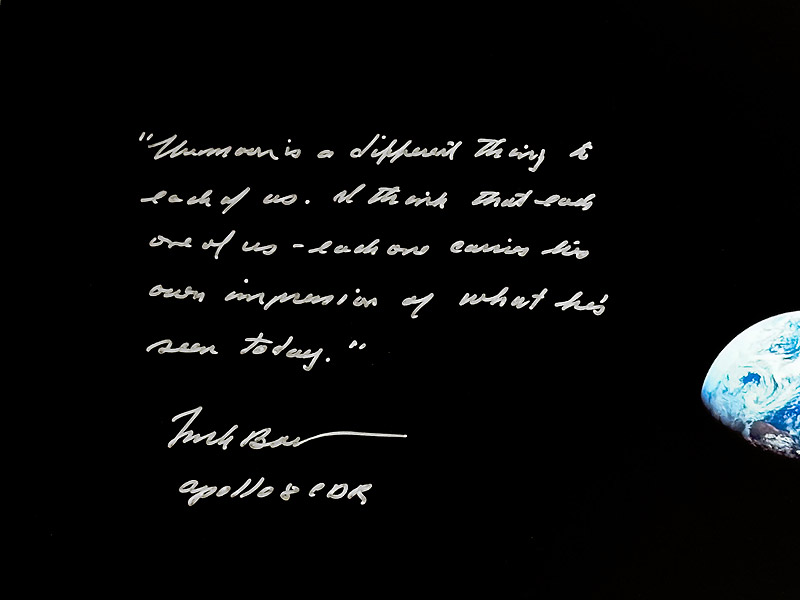 "The moon is a different thing to
each of us. I think that each
one of us - each one carries his
own impression of what he's
seen today."
Frank Bor
Apollo 8 CDR